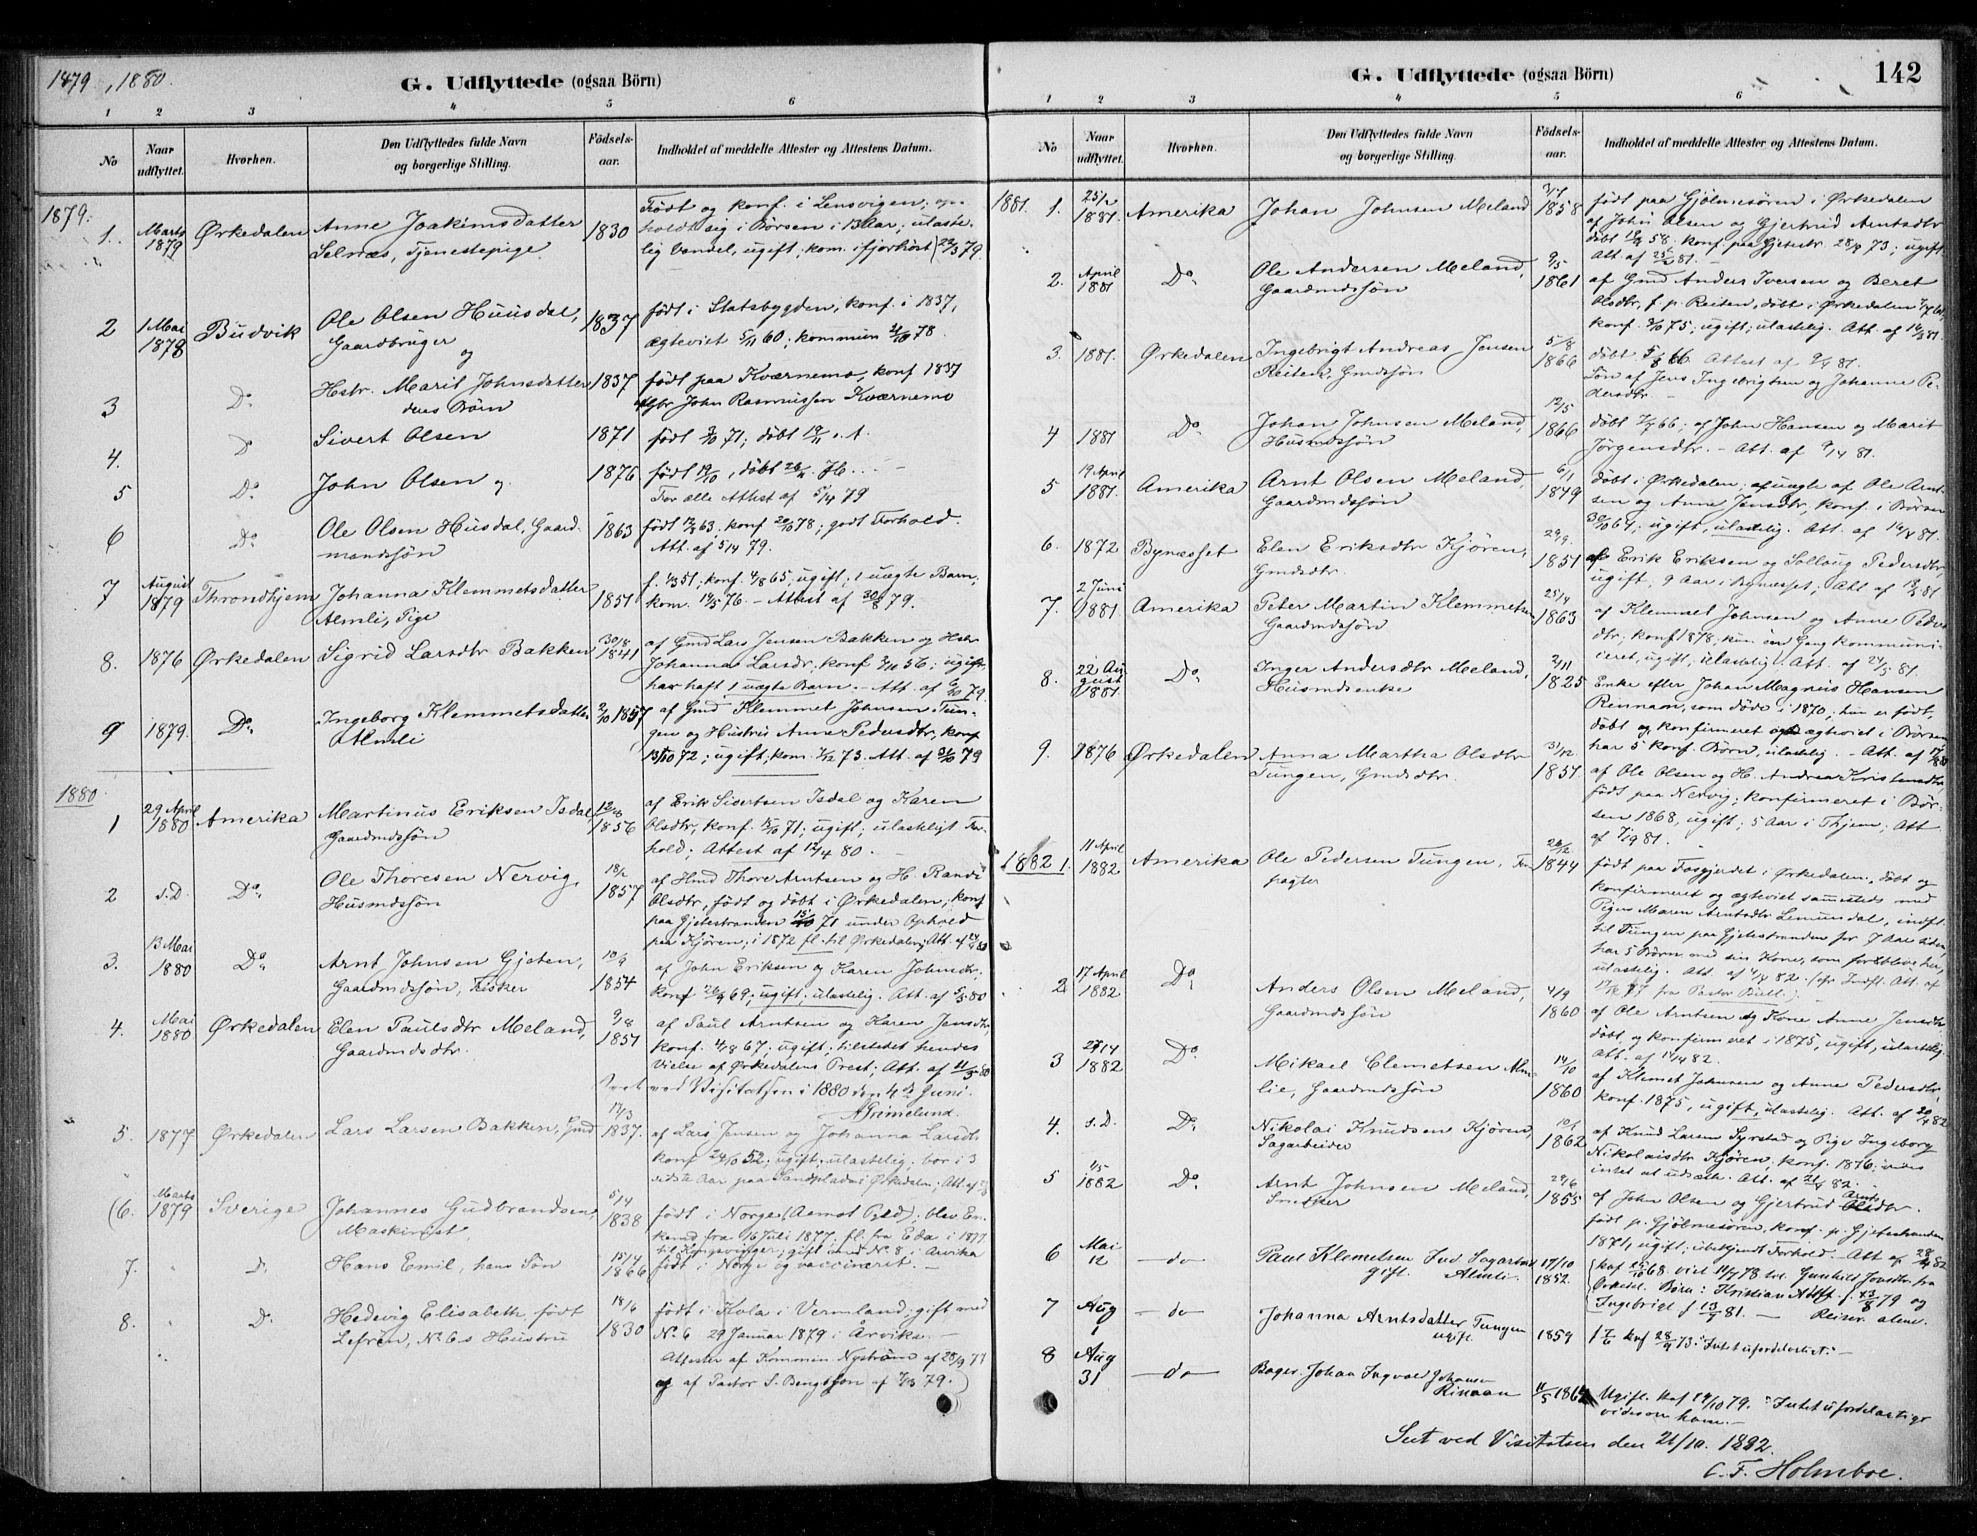 1879, 1880.
G. Udflyttede (ogsaa Börn)
1 2 3 4 5 6
No
Naar udflyttet.
Hvorhen.
Den Udflyttedes fulde Navn og borgerlige Stilling.
Födsels-aar.
Indholdet af meddelte Attester og Attestens Datum.
1879.
1. Marts 1879 Ørkedalen Anne Joakimsdatter 1830 Født og konf. i Lensvigen; op-
Selnæs, Tjenestepige. holdt sig i Børsen i 13 Aar; ulaste-
lig Vandel, ugift, kom. i fjorhöst
2 1 Mai 1878 Budvik Ole Olsen Huusdal, 1837 født i Statsbygden, konf. i 1837,
Gaardbruger og ægteviet 5/11 60; kommun 78.
3 Do Hstr. Marit Johnsdatter 1837 født paa Kværnemo, konf 1837
deres Børn John Rasmussen Kværnemo
4. Do Sivert Olsen 1871 født 71; döbt
5 Do John Olsen og 1876 født 19/10, döbt
For alle Attest af 5/4 79
6 Do Ole Olsen Husdal, Gaard- 1863 født 63. konf 78; godt Forhold.
mandssøn Att. af 5/4 79.
7 August 1879 Throndhjem Johanna Klemmetsdatter 1851 f. 51; konf. 4/8 65, ugift; 1 uægte Barn;
Almli, Pige kom. 14/5 76. – Attest af 30/8 79.
8. 1876 Ørkedalen Sigrid Larsdtr Bakken 30/8 1841 af Gmd Lars Jensen Bakken og Hstr
Johanna Larsdr. konf 56; ugift,
har haft 1 uægte Barn. – Att. af 79.
9 1879. Do Ingeborg Klemmetsdatter 2/10 1857 af Gmd Klemmet Johnsen Tun-
Almli gen og Hustru Anne Pedersdtr, konf
13/10 72; ugift; kom. 7/12 73. Att. af 79
1880.
1 29 April 1880 Amerika Martinus Eriksen Isdal, 1856 af Erik Sivertsen Isdal og Karen
Gaardmdssøn Olsdtr, konf. 71; ugift; ulasteligt For-
hold; Attest af 12/4 80.
2 s.D. Do Ole Thoresen Nervig, 18/2 1857 af Hmd Thore Arntsen og H. Randi
Husmdssøn Olsdtr, født og döbt i Ørkedalen; konf
paa Gjetestranden 71 under Ophold
paa Kjören; i 1872 fl. til Ørkedalen; Att. af
3. 13 Mai 1880 Do Arnt Johnsen Gjeten, 10/9 1854 af John Eriksen og Karen Johnsdr.
Gaardmdssøn, Fisker konf 69; ugift; ulastelig. Att. af 5/5 80
4. Mai 1880 Ørkedalen Elen Paulsdtr Meland, 9/8 1851 af Paul Arntsen og Karen Jensdtr,
Gaardmdsdtr. konf. 4/8 67; ugift; tilstedet hendes
Vielse af Ørkedalens Prest; Att. af 11/5 80
Seet ved Visitatsen i 1880 den 4de Juni.
AGrimelund.
5. 1877. Ørkedalen Lars Larsen Bakken, Gmd 17/3 1837. af Lars Jensen og Johanna Larsdtr
konf 24/10 52; ugift; ulastelig; bor i 3
sidste Aar paa Sandplads i Ørkedalen; Att. af
(6. Marts 1879 Sverige Johannes Gudbrandsen, 5/4 1838 født i Norge (Aamot Pgld); blev En-
Maskinist kemd fra 16 Juli 1877. fl. fra Eda i 1877
til Kongsvinger; gift med No 8 i Arvika
7. Do Hans Emil, hans Søn 15/4 1866 født i Norge og vaccineret. –
8. Do Hedevig Elisabeth, født 18/6 1830 født i Kola i Vermland; gift med
Lefrén, No 6s Hustru No 6 29 Januar 1879 i Arvika. –
Attester af Kommin. Nyström af 28/9 77
og af Pastor S. Bengtsson af 79.)
G. Udflyttede (ogsaa Börn) 142
1 2 3 4 5 6
No
Naar udflyttet.
Hvorhen.
Den Udflyttedes fulde Navn og borgerlige Stilling.
Födsels-aar.
Indholdet af meddelte Attester og Attestens Datum.
1881. 1. 25/2 1881 Amerika Johan Johnsen Meland 1858 født paa Gjølmesören i Ørkedalen
af John Olsen og Gjertrud Arntsdtr
döbt 58; konf. paa Gjetestr. 28/9 73; ugift
Att. af 81.
2. April 1881 Do Ole Andersen Meland, 9/5 1861 af Gmd Anders Iversen og Beret
Gaardmdssøn Olsdtr, f. p. Reiten, döbt i Ørkedalen
konf. 75, ugift, ulastelig. Att. af
3. 1881. Ørkedalen Ingebrigt Andreas Jensen 5/8 1866 döbt 66 Attest af 81.
Reiten, Gmdssøn Søn af Jens Ingebrigtsen og Johanne Pe-
dersdtr –
4 1881 Do Johan Johnsen Meland, 12/5 1866 döbt 66; af John Hansen og Marit
Husmdssøn Jörgensdtr. – Att. af 81.
5 19 April 1881. Amerika Arnt Olsen Meland, 6/1 1849 döbt i Ørkedalen; af uægte af Ole Arnt-
Gaardmdssøn sen og Anne Jensdtr, konf. i Børsen
64; ugift, ulastelig. Att. af 81.
6. 1872 Bynæsset Elen Eriksdtr Kjören, 29/9 1851 af Erik Eriksen og Solloug Pedersdtr,
Gmdsdtr. ugift, 9 Aar i Bynæsset; Att af 81
7. 2 Juni 1881 Amerika Peter Martin Klemmetsen 25/4 1863 af Klemmet Johnsen og Anne Peders-
Gaardmdssøn dtr; konf 1878; kun en Gang kommuni-
ceret, ugift, ulastelig. Att. af 24/5 81.
8. 22 August 1881 Do Inger Andersdtr Meland, 2/11 1825 Enke efter Johan Magnus Hansen
Husmdsenke Rinnaan, som döde i 1870; hun er født,
döbt og konfirmeret og ægteviet i Børsen
har 5 konf. Børn, ulastelig. – Att. af
9. 1876 Ørkedalen Anna Martha Olsdtr 31/12 1851. af Ole Olsen og H. Andrea Kristensdtr
Tungen, Gmdsdtr. født paa Nervig; konfirmeret i Bør-
sen 1868, ugift; 5 Aar i Thjem; Att
af 7/9 81.
1882 1. 11 April 1882 Amerika Ole Pedersen Tungen, For- 1844 født paa Fosgjerdet i Ørkedalen, döbt og
pagter konfirmeret og ægteviet sammesteds med
Pigen Maren Arntsdtr Lemundal, indfl.
til Tungen paa Gjetestranden for 7 Aar siden,
har 5 Børn med sin Kone, som forblive her,
ulastelig. Att. af 4/4 82. (cfr Indfl. Att. af
77 fra Pastor Bull.)
2 17 April 1882 Do Anders Olsen Meland, 4/9 1860 af Ole Arntsen og Kone Anne Jensdtr
Gaardmdssøn döbt og konfirmeret i 1875, ugift, ulastelig.
Att. af 82.
3 1882 Do Mikael Clemetsen Alm- 14/10 1860 af Klemet Johnsen og Anne Pedersdtr
lie, Gaardmdssøn konf. 1875, ugift, ulastelig. Att. af 20/4 82
4. s.D. Do Nikolai Knudsen Kjören, 1862 af Knud Larsen Syrstad og Pige Ingeborg
Sagarbeider Nikolaisdtr Kjören, konf. 1876; vides
intet at udsætte. Att. af 21/4 82.
5 1/5 1882 Do Arnt Johnsen Meland, 29/6 1855 af John Olsen og Gjertrud Arntsdtr.
Snedker født p. Gjölmesören, konf. p. Gjetestranden
1871, ugift; ubekjendt Forhold. Att af 82
6 Mai 12 – do Paul Klemetsen Ind Sagarbmd 17/10 1852. kof 68. viet 78 tel. Gunhild Jonsdtr fra
gift. Almli. Ørkedal. Børn: Kristian Adolf f. 79 og
Ingebrigt f 81. – Reiser alene.
7 Aug 1 – do Johanna Arntsdatter Tungen 1859 f 7/6 kof 28/9 73. Intet ufordelagtigt. –
ugift
8 Aug 31 – do Bager Johan Ingvald Johansen 1864 Ugift. kof 79. Intet ufordelagtigt
Rinaan vides om ham. –
Seet ved Visitatsen den 21/10. 1882.
C. F. Holmboe.